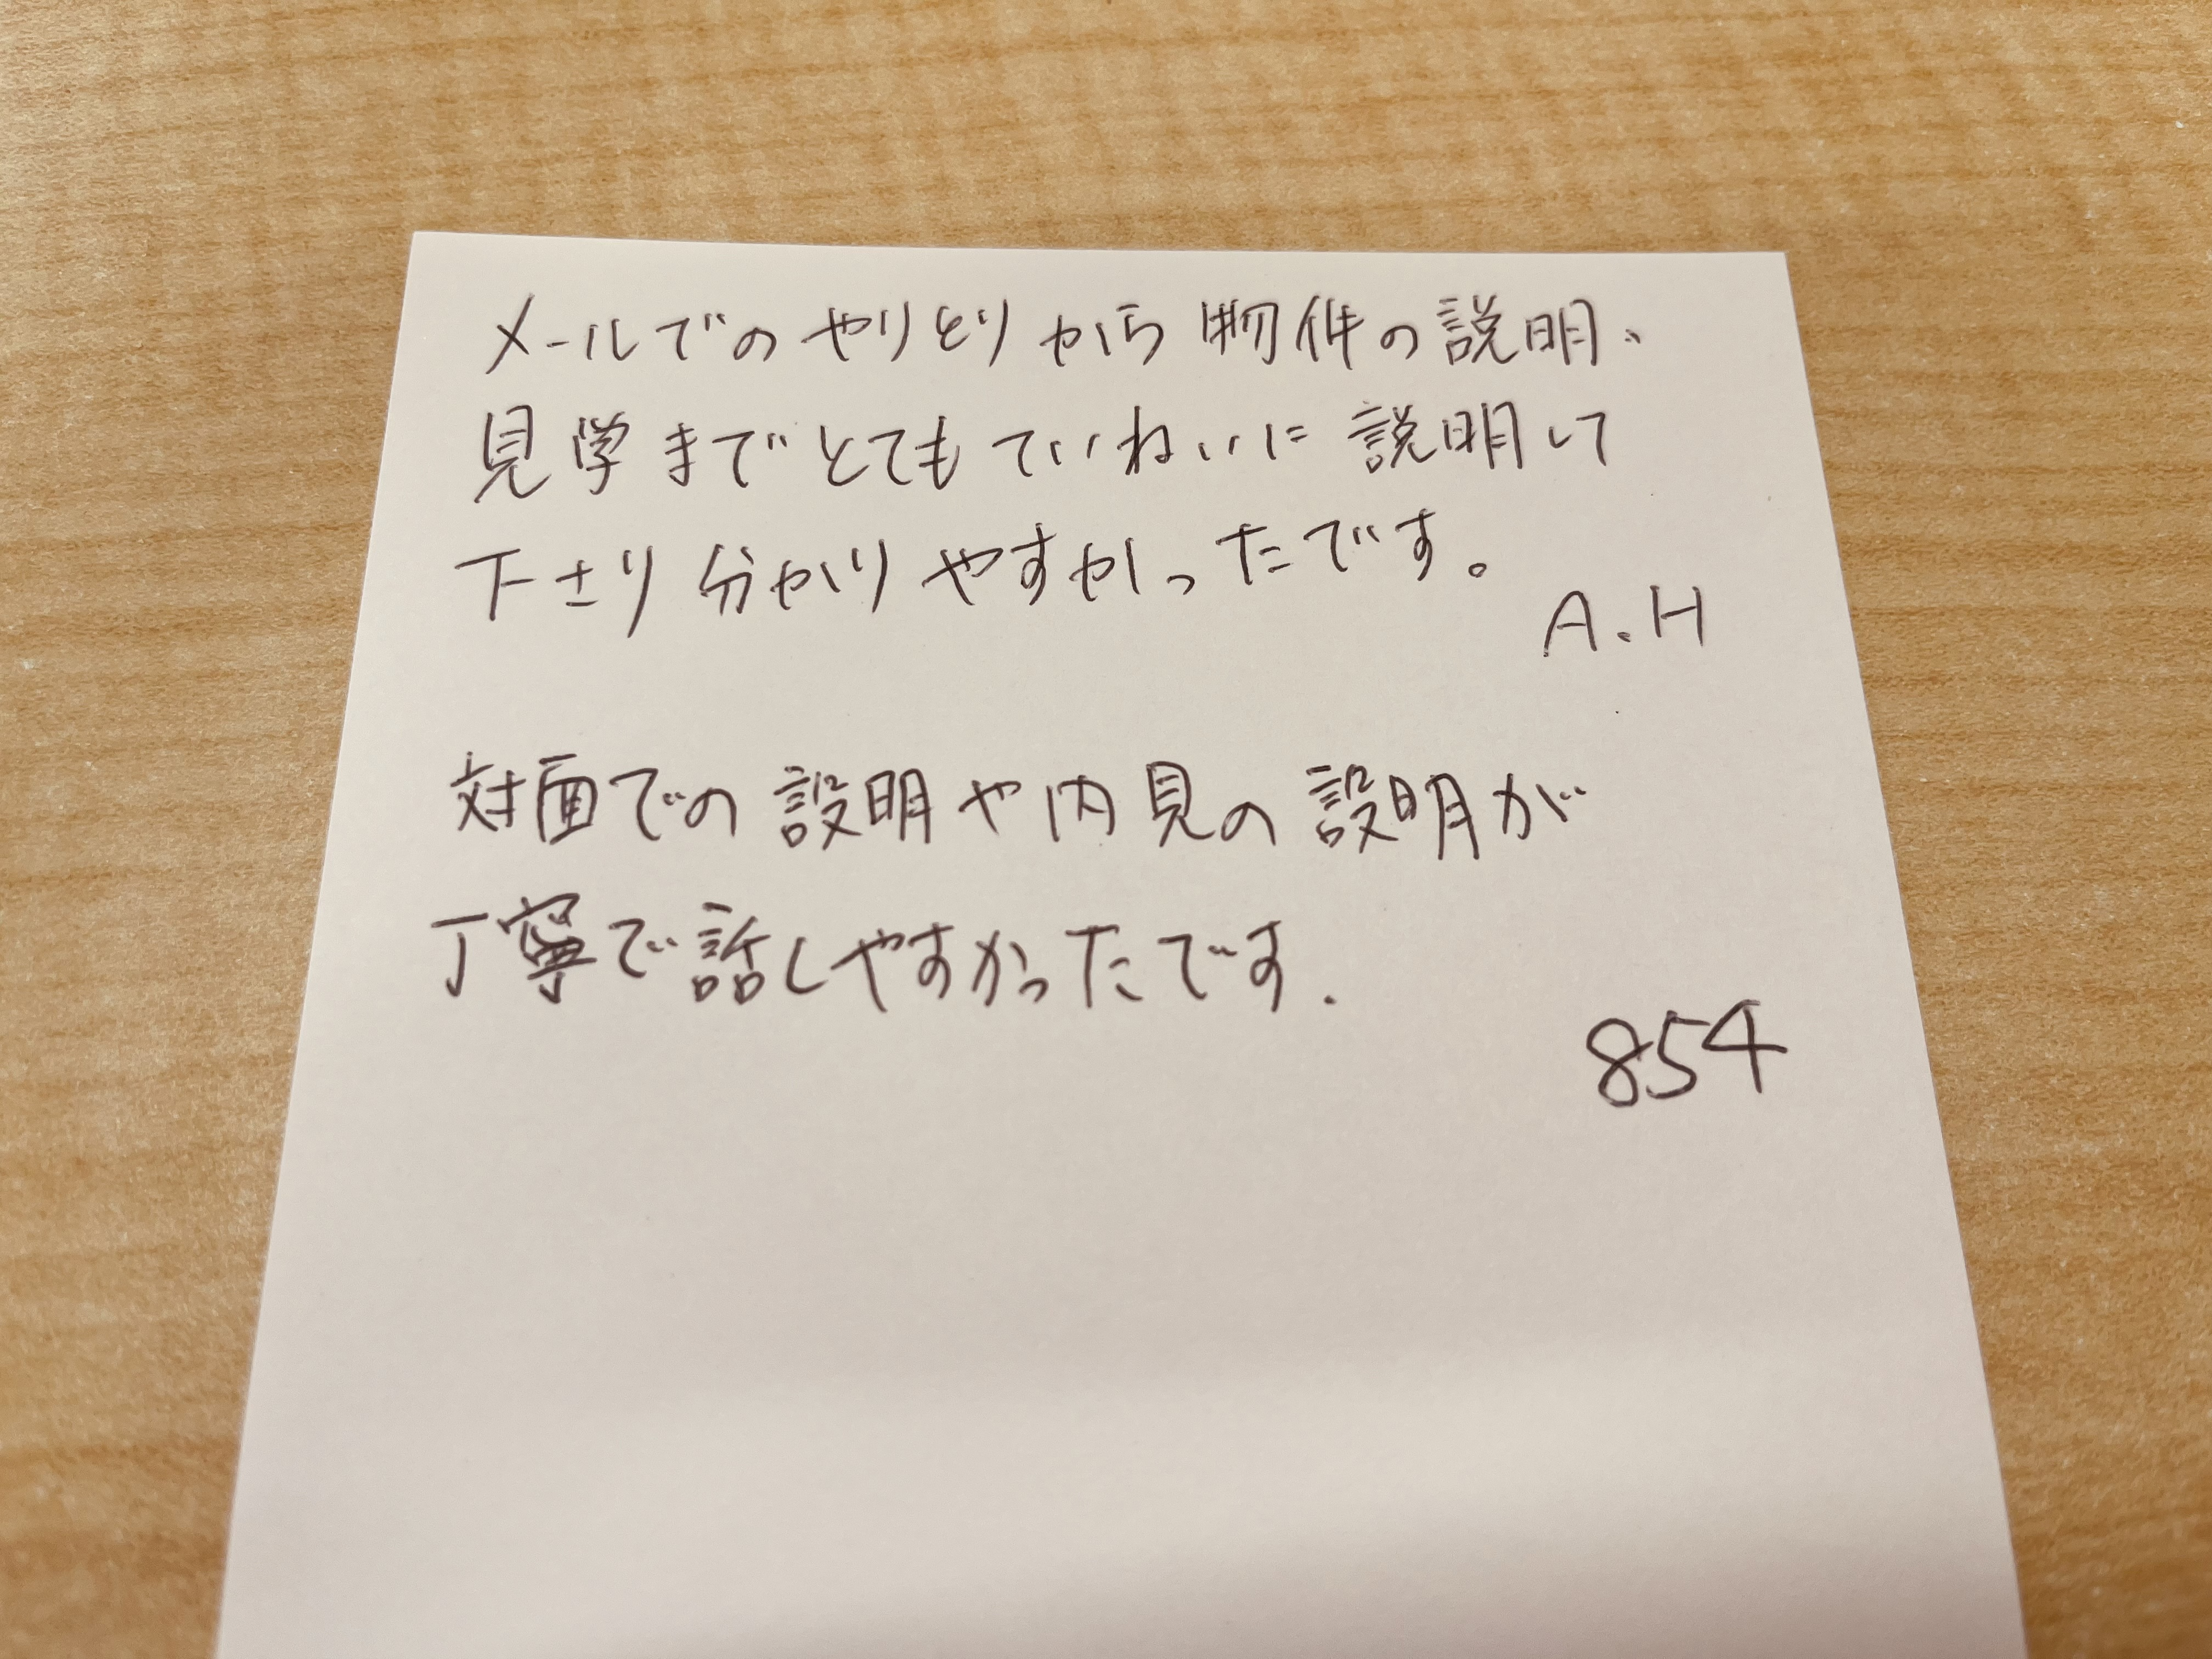 メールでのやりとりから物件の説明、
見学までとてもていねいに説明して
下さり分かりやすかったです。
A.H
対面での設明や内見の設明が
丁寧で話しやすかったです.
854